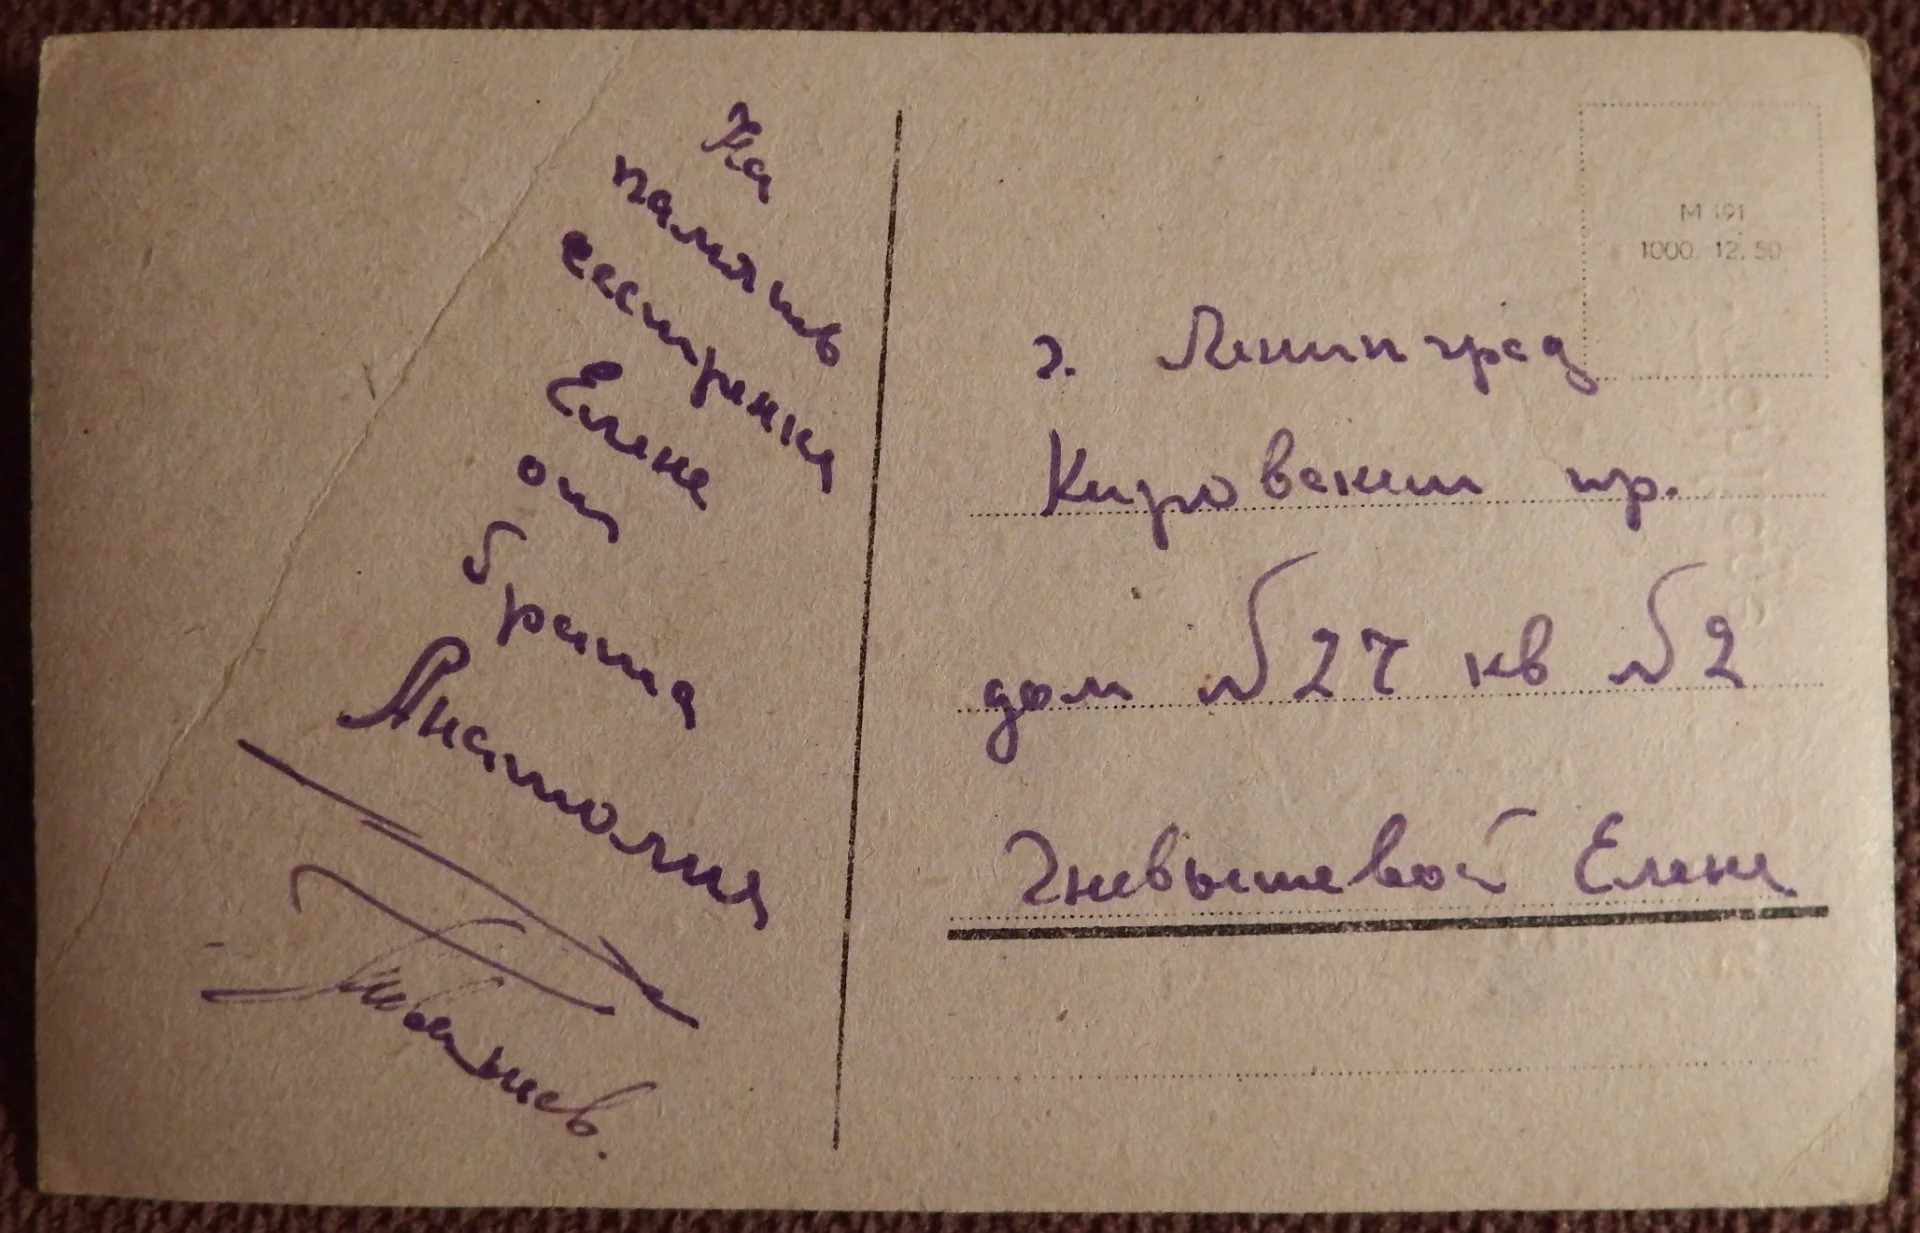 На
память
сестренка
Елене
от
брата
Анатолия
Гневышев.
М 191
1000. 12. 50
г. Ленинград
Кировский пр.
дом №27 кв №2
Гневышевой Елене